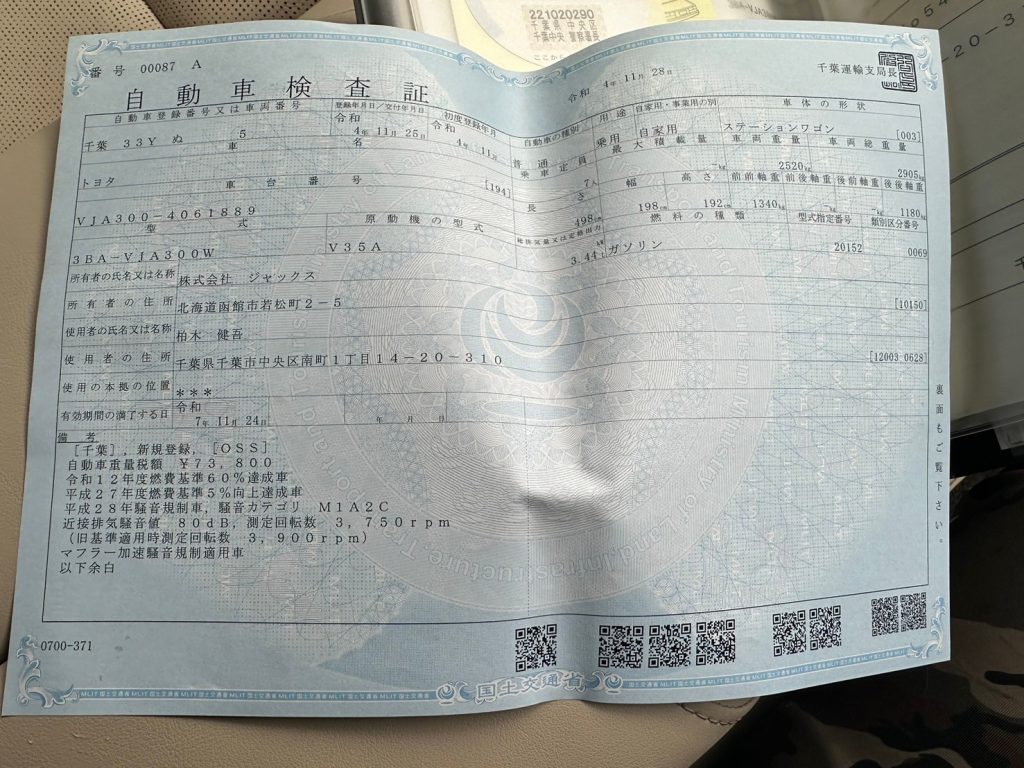 221020290
千葉県 中央区
千葉中央 警察署長
番号 00087 A
令和 4年 11月 28日
千葉運輸支局長
自動車検査証
自動車登録番号又は車両番号
登録年月日/交付年月日
初度登録年月
自動車の種別
用途
自家用・事業用の別
車体の形状
千葉 33Y ぬ 5
令和 4年 11月 25日
令和 4年 11月
普通
乗用
自家用
ステーションワゴン
[003]
車名
乗車定員
最大積載量
車両重量
車両総重量
トヨタ
[194]
7人
-kg
2520kg
2905kg
車台番号
長さ
幅
高さ
前前軸重
前後軸重
後前軸重
後後軸重
VJA300-4061889
498cm
198cm
192cm
1340kg
-kg
-kg
1180kg
型式
原動機の型式
総排気量又は定格出力
燃料の種類
型式指定番号
類別区分番号
3BA-VJA300W
V35A
kW
3.44L
ガソリン
20152
0069
所有者の氏名又は名称
株式会社 ジャックス
所有者の住所
北海道函館市若松町2-5
[10150]
使用者の氏名又は名称
柏木 健吾
使用者の住所
千葉県千葉市中央区南町1丁目14-20-310
[12003-0628]
使用の本拠の位置
***
有効期間の満了する日
令和 7年 11月 24日
年 月 日
備考
[千葉],新規登録,[OSS]
自動車重量税額 ¥73,800
令和12年度燃費基準60%達成車
平成27年度燃費基準5%向上達成車
平成28年騒音規制車,騒音カテゴリ M1A2C
近接排気騒音値 80dB,測定回転数 3,750rpm
(旧基準適用時測定回転数 3,900rpm)
マフラー加速騒音規制適用車
以下余白
裏面もご覧下さい。
0700-371
国土交通省